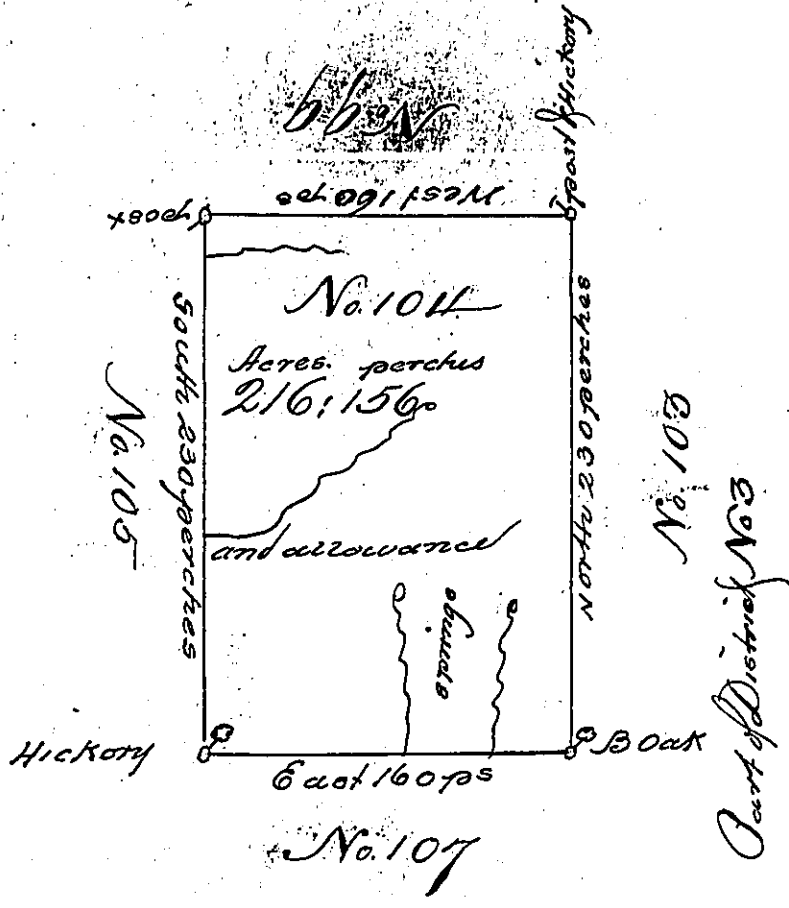 No. 99
post
West 160 ps
post & Hickory
No. 104
Acres. perches
216: 156
and allowance
South 230 perches
No. 105
North 230 perches
No. 103
Part of District No 3
Hickory
B Oak
East 160 ps
No. 107